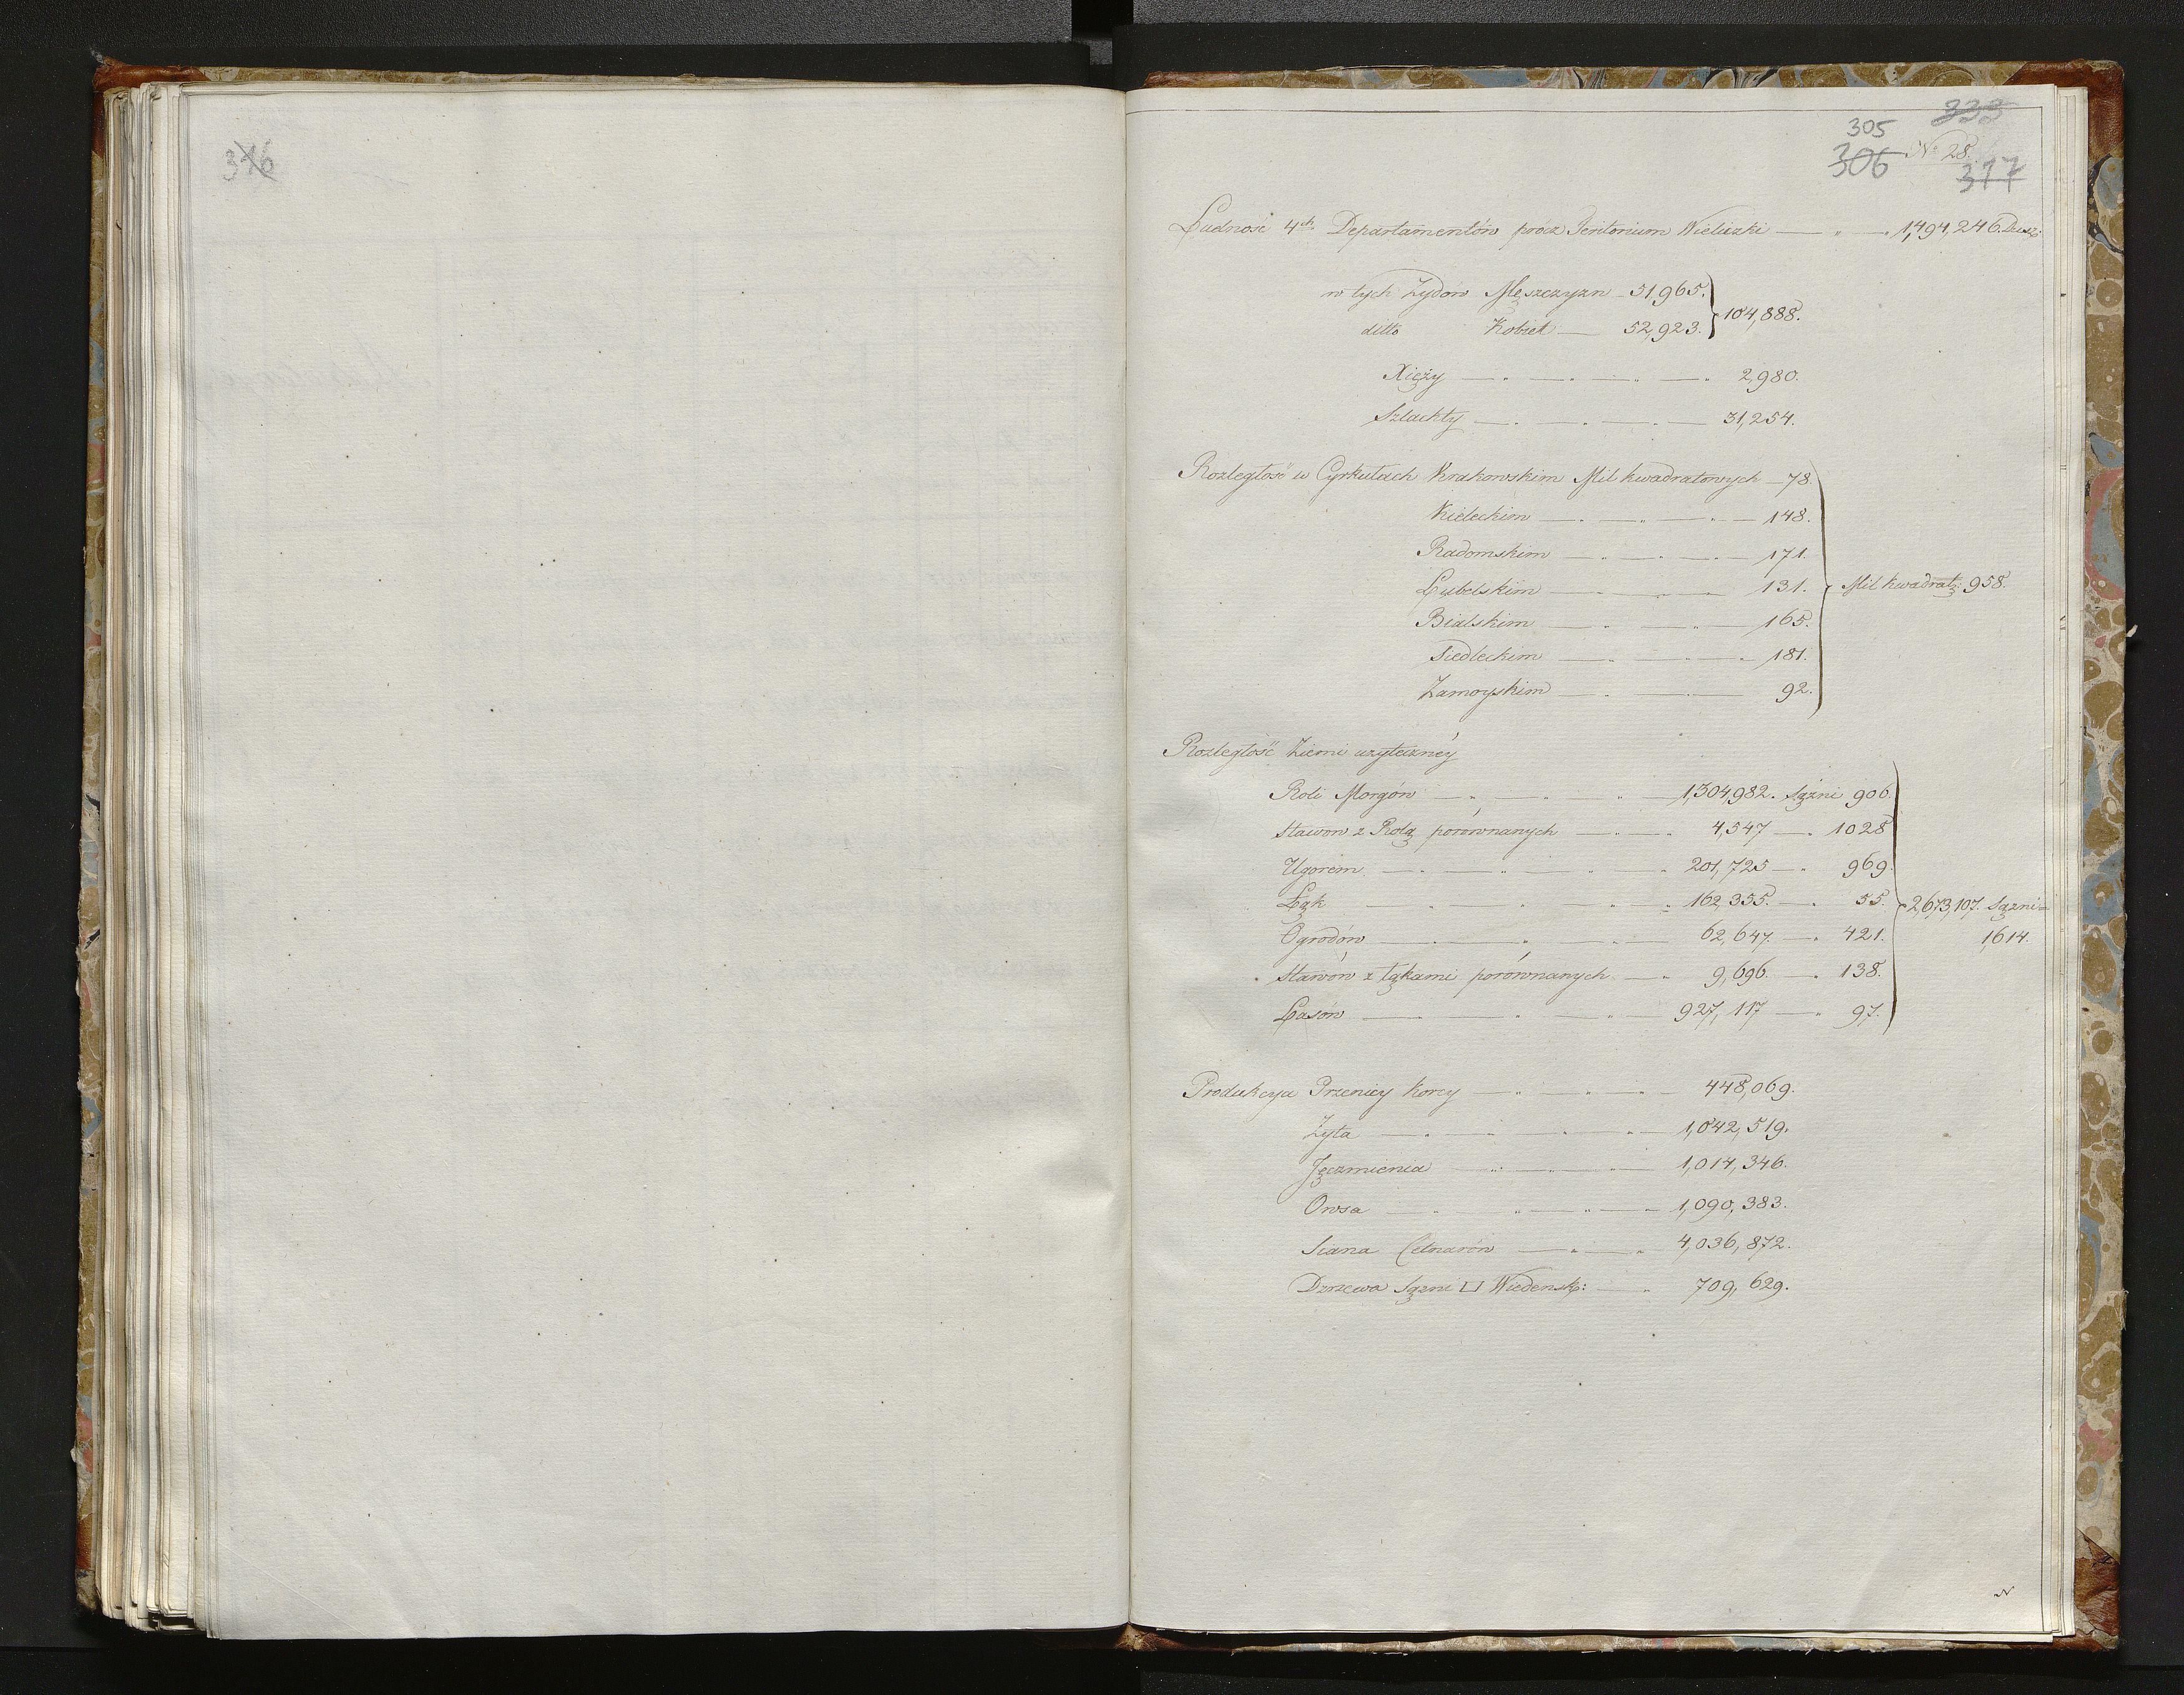 316
333
305
306 N° 28.
317
Ludność 4ch Departamentów prócz Teritorium Wieliczki — „ — 1,494,246. Dusz:
w tych Zydów Męszczyzn — 51,965.
104,888.
ditto Kobiet — 52,923.
Xięży — „ — „ — „ — „ 2,980.
Szlachty — „ — „ — „ — 31,254.
Rozległość w Cyrkułach Krakowskim Mil kwadratowych — 78.
Kieleckim — „ — „ — „ — 148.
Radomskim — „ — „ — „ — 171.
Lubelskim — „ — „ — 131. Mil kwadrat: 958.
Bialskim — „ — „ — 165.
Siedleckim — „ — „ — „ 181.
Zamoyskim — „ — „ — 92.
Rozległość Ziemi uzyteczney
Roli Morgów — „ — „ — „ — 1,304,982. Sązni 906.
Stawow z Rolą porównanych — „ — „ 4,547 — „ 1028
Ugorem — „ — „ — „ — „ 201,725 — „ 969.
Łąk — „ — „ — „ — „ 162,355. — „ 55. 2,673,107. Sązni =
Ogrodów — „ — „ — „ — 62,647. — „ 421. 1,614.
Stawów z łąkami porównanych — „ 9,696. — „ 138.
Lasów — „ — „ — „ — 927,117 — „ 97.
Produkcya Przenicy Korcy — „ — „ — „ — 448,069.
Zyta — „ — „ — „ — „ — 1,042,519.
Jęczmienia — „ — „ — „ — 1,014,346.
Owsa — „ — „ — „ — „ 1,090,383.
Siana Cetnarów — „ — „ 4,036,872.
Drzewa Sązni ⊔ Wiedensk: — „ 709,629.